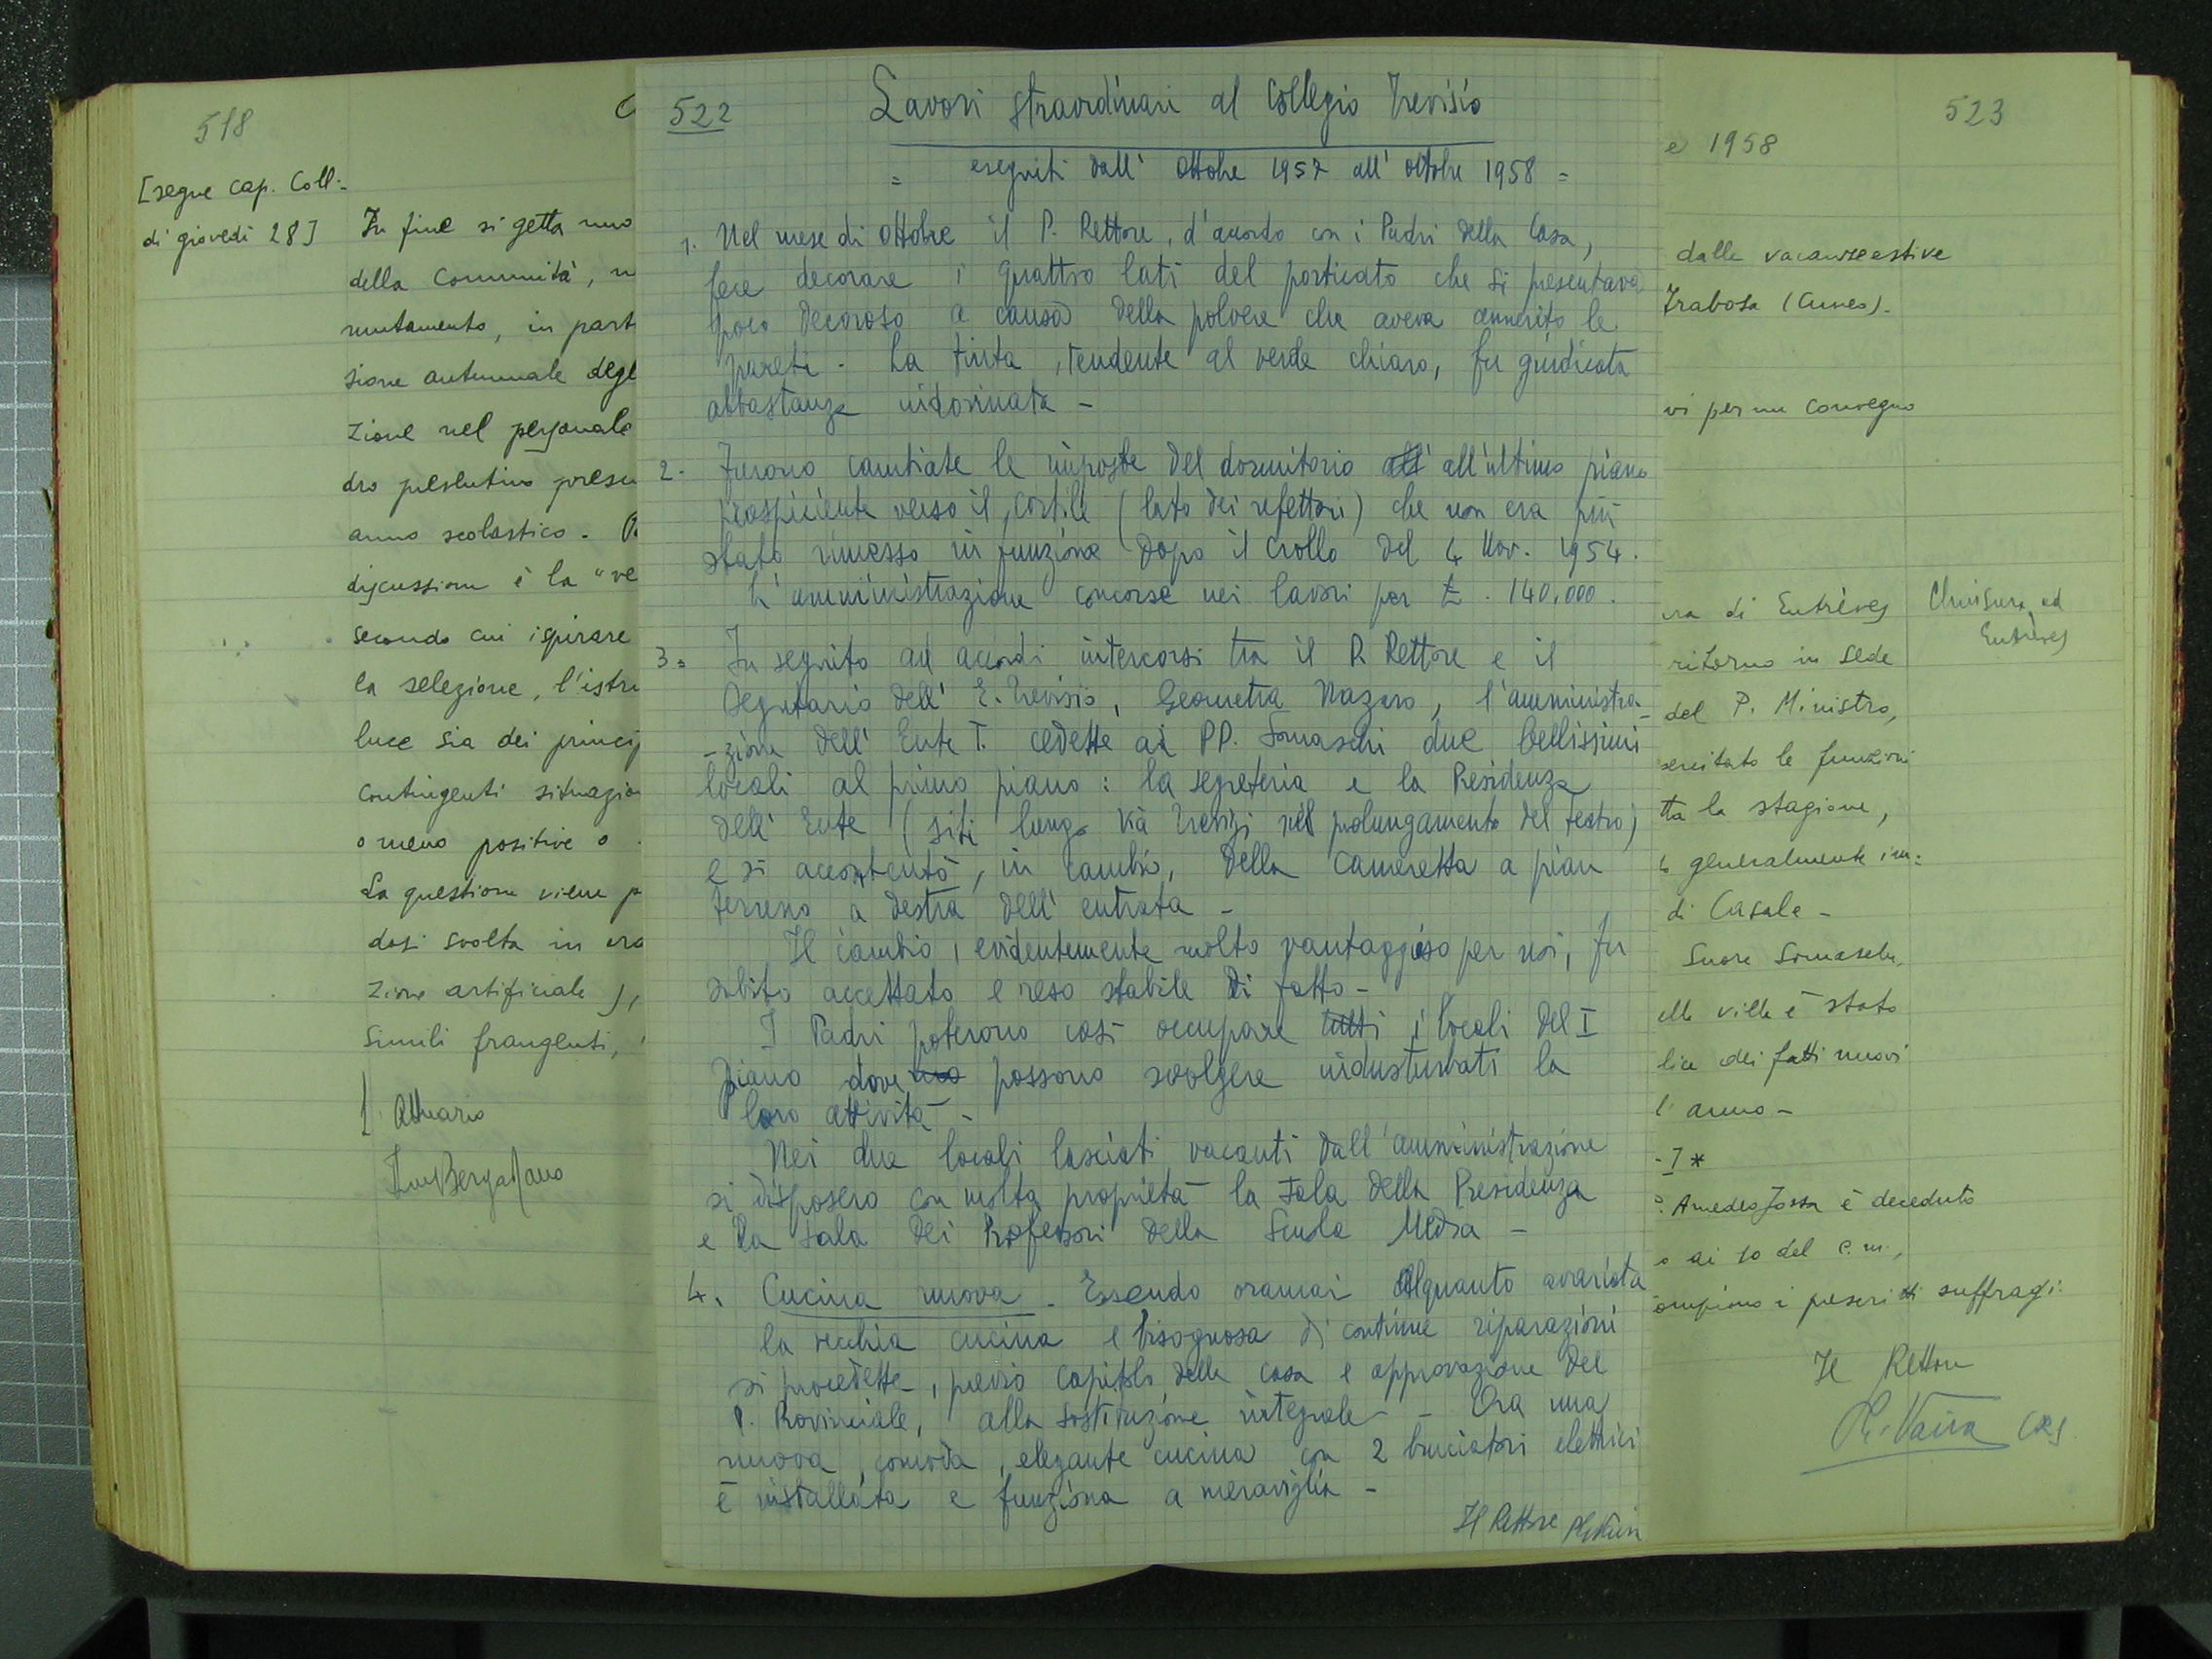 518
[segue cap. Coll:
di giovedì 28]
In fine si getta uno
della Comunità,
mutamento, in part
sione autunnale degl
zione nel personale
dro preventivo
anno scolastico.
discussione è la "ve
secondo cui ispirare
la selezione, l'istru
luce sia dei princip
contingenti situazio
o meno positive o
La questione viene p
dosi svolta in
zione artificiale),
simili frangenti,
Attuario
522
Lavori straordinari al Collegio Trevisio
= eseguiti dall' Ottobre 1957 all' ottobre 1958 =
1. Nel mese di Ottobre il P. Rettore, d'accordo con i Padri della Casa,
fece decorare i quattro lati del porticato che si presentava
poco decoroso a causa della polvere che aveva annerito le
pareti - La tinta, tendente al verde chiaro, fu giudicata
abbastanza indovinata -
2. Furono cambiate le imposte del dormitorio all' all'ultimo piano
prospiciente verso il cortile (lato dei refettori) che non era più
stato rimesso in funzione dopo il crollo del 4 Nov. 1954.
L'amministrazione concorse nei lavori per £. 140.000.
3. In seguito ad accordi intercorsi tra il P. Rettore e il
Segretario dell' E. Trevisio, Geometra Nazaro, l'amministra-
-zione dell' Ente T. cedette ai PP. Somaschi due bellissimi
locali al primo piano: la segreteria e la Presidenza
dell' Ente (siti lungo Via Trevigi nel prolungamento del teatro)
e si accontentò, in cambio, della cameretta a pian
terreno a destra dell' entrata -
Il cambio, evidentemente molto vantaggioso per noi, fu
subito accettato e reso stabile di fatto -
I Padri poterono così occupare tutti i locali del I
piano dove possono svolgere indisturbati la
loro attività -
Nei due locali lasciati vacanti dall'amministrazione
si disposero con molta proprietà la sala della Presidenza
e la sala dei Professori della Scuola Media -
4. Cucina nuova. Essendo oramai alquanto avariata
la vecchia cucina e bisognosa di continue riparazioni
si procedette, previo capitolo della casa e approvazione del
P. Provinciale, alla sostituzione integrale - Ora una
nuova, comoda, elegante cucina con 2 bruciatori elettrici
è installata e funziona a meraviglia -
Il Rettore
523
e 1958
dalle vacanze estive
Frabosa (Cuneo).
vi per un convegno
ra di Entrèves
Chiusura ad
Entrèves
ritorno in sede
del P. Ministro,
sercitato le funzioni
tta la stagione,
generalmente im:
di Casale -
Suore Somasche,
ella villa è stato
lice dei fatti nuovi
l'anno -
-]*
P. Amedeo Fossa è deceduto
o ai 10 del c.m.,
ompiono i prescritti suffragi.
Il Rettore
P. Vaira CRS.